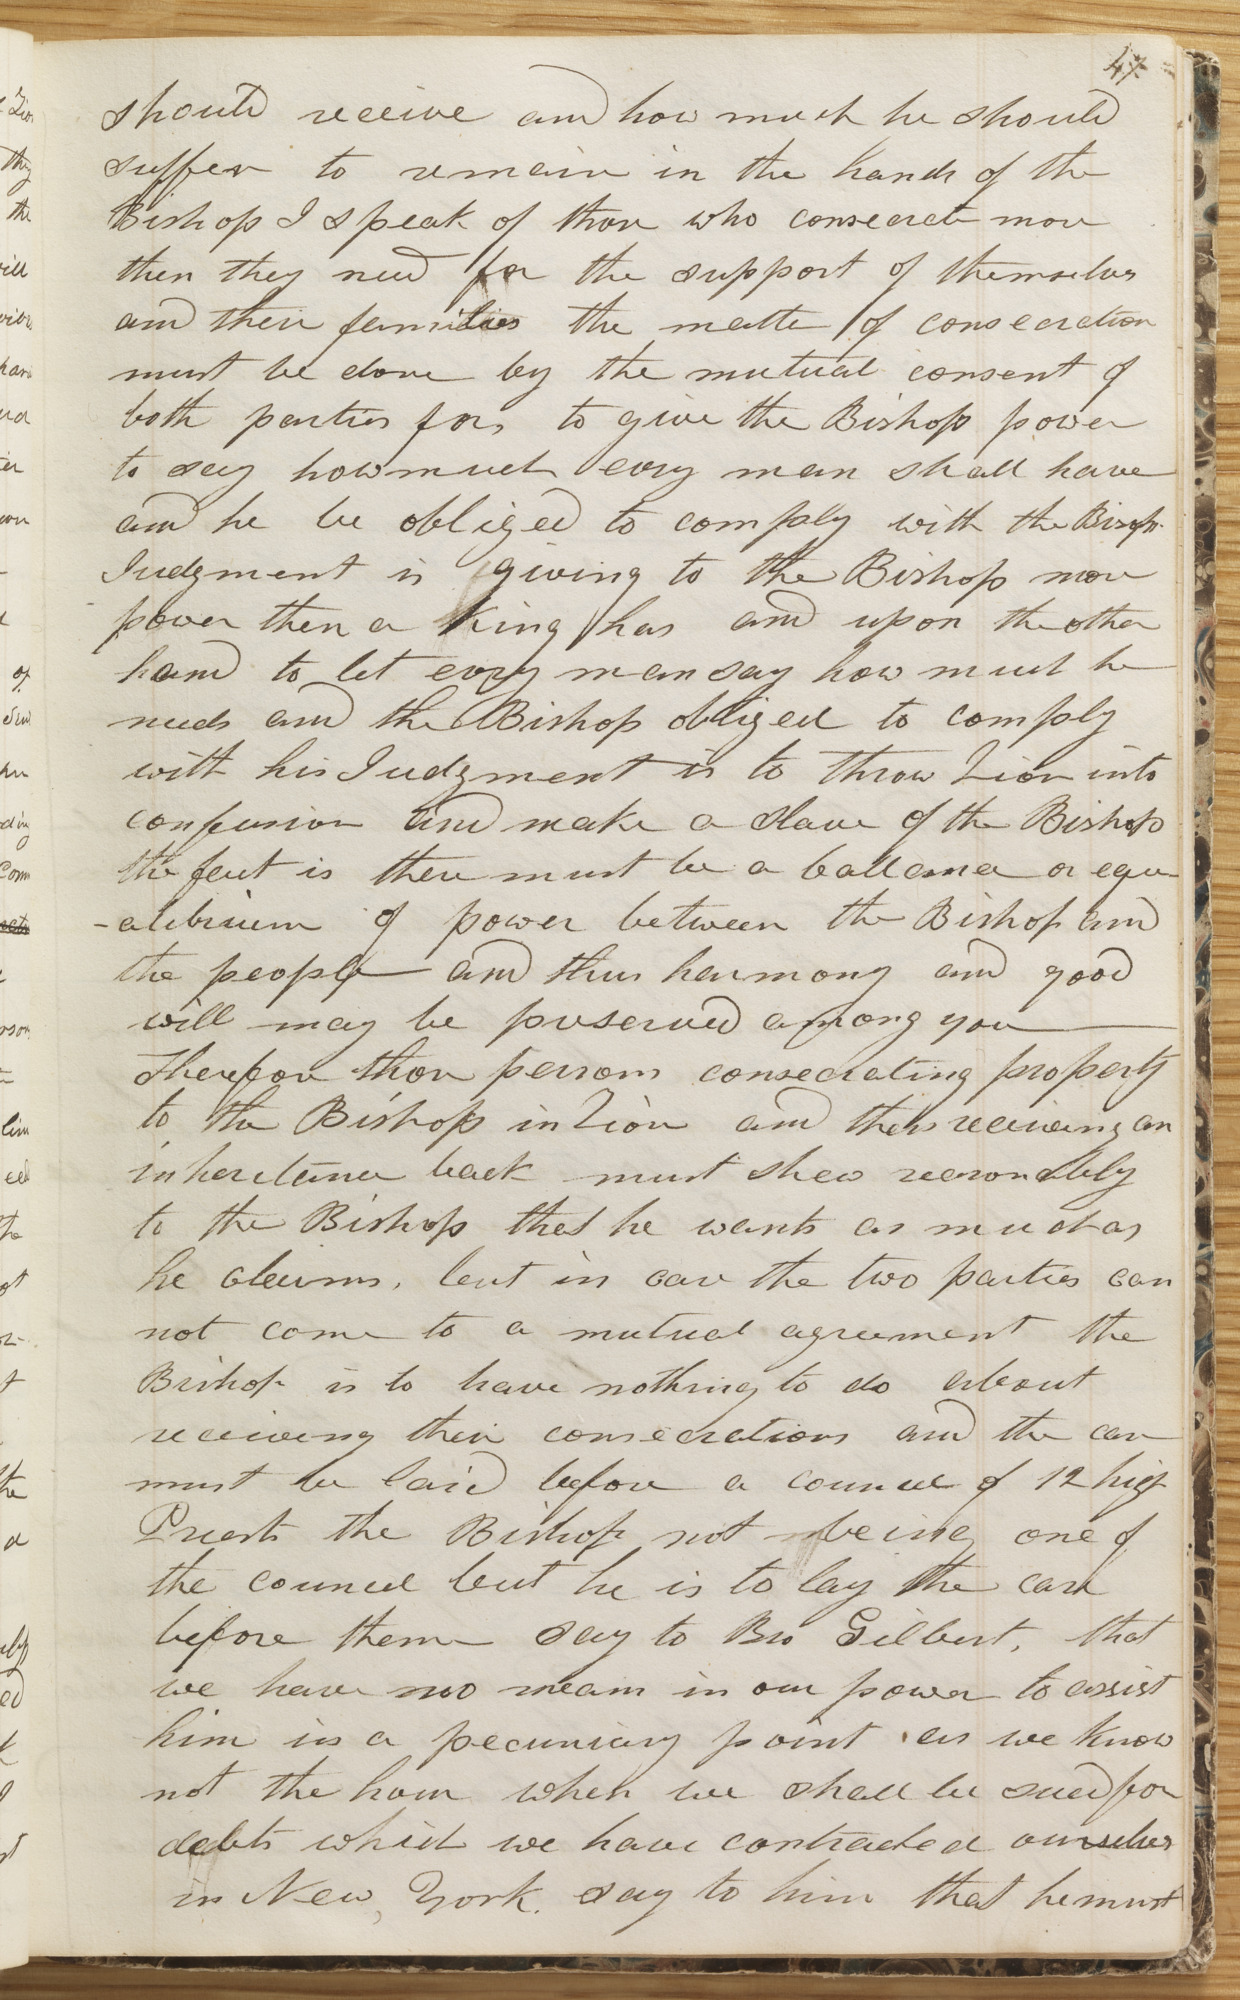 47
should receive and how much he should
suffer to remain in the hands of the
Bishop I speak of those who consecrate more
then they need for the support of themselves
and their families the matter of consecration
must be done by the mutual consent of
both parties for, to give the Bishop power
to say how much evry man shall have
and he be obliged to comply with the Bishops
Judgment is giving to the Bishop more
power then a King has and upon the other
hand to let evry man say how much he
needs and the Bishop obliged to comply
with his Judgment is to throw Zion into
confusion and make a Slave of the Bishop
the fact is there must be a ballance or equa
-alibrium of power between the Bishop and
the people and thus harmony and good
will may be preserved among you
Therefore those persons consecrating property
to the Bishop in Zion and then receiving an
inheritance back must shew reasonably
to the Bishop that he wants as much as
he claims, but in case the two parties can
not come to a mutual agreement the
Bishop is to have nothing to do about
receiving their consecrations and the case
must be laid before a council of 12 high
Priests the Bishop not being one of
the council but he is to lay the case
before them say to Bro Gilbert, that
we have no means in our power to assist
him in a pecuniary point as we know
not the hour when we shall be sued for
debts which we have contracted ourselves
in New, York. say to him that he must